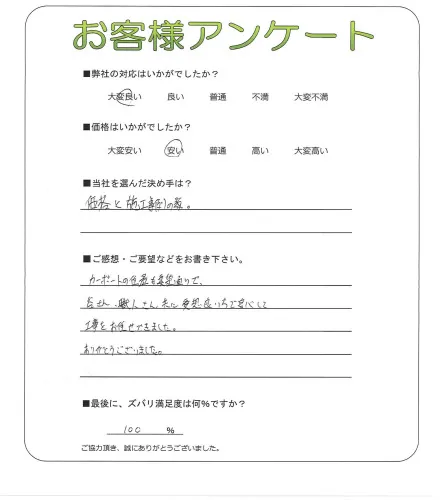 お客様アンケート
■弊社の対応はいかがでしたか?
大変良い 良い 普通 不満 大変不満
■価格はいかがでしたか?
大変安い 安い 普通 高い 大変高い
■当社を選んだ決め手は?
価格と施工事例の数。
■ご感想・ご要望などをお書き下さい。
カーポートの位置も希望通りで、
職人さん共に感じ良いので安心して
工事をお任せできました。
ありがとうございました。
■最後に、ズバリ満足度は何%ですか?
100 %
ご協力頂き、誠にありがとうございました。